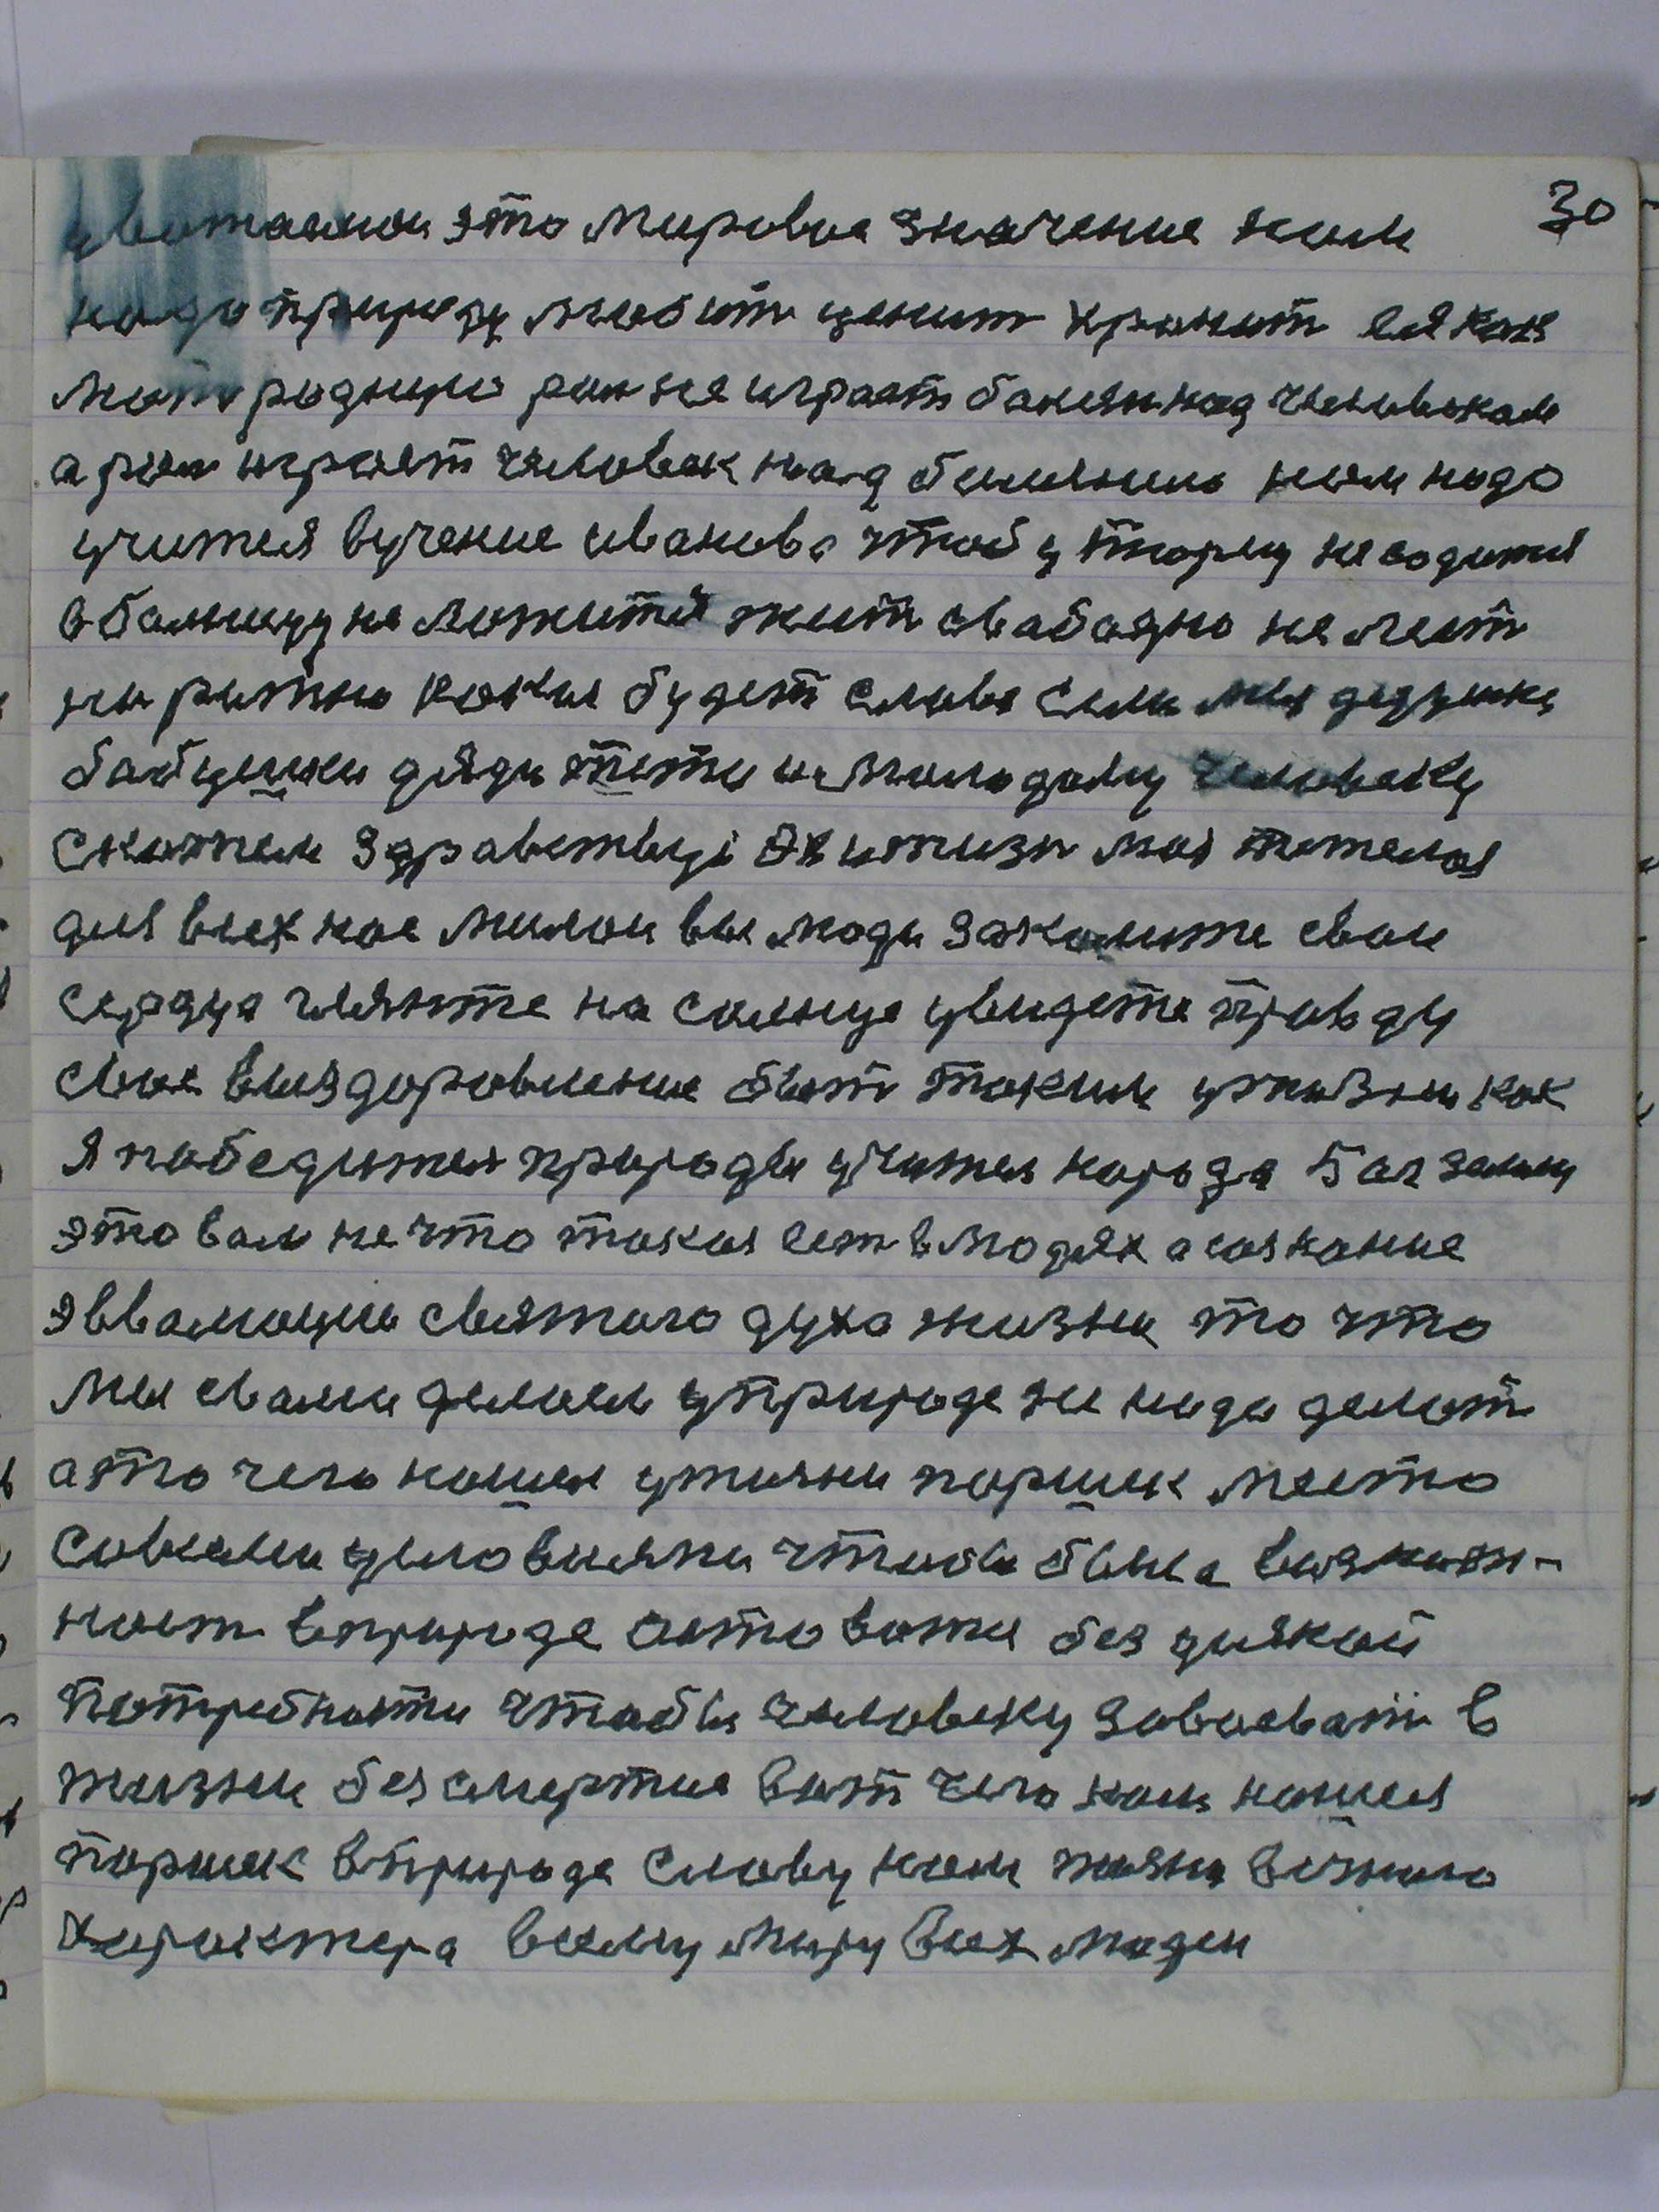 30
уважаемои это мировое значение нам
надо природу любит ценит хранит ея как
мат родную рак не играет балезн над человекам
а рак играет человек над балезнию нам надо
учится вучение иванова чтоб у тюрму не садится
в балницу не ложится жит свабодно не лест
на ражно какая будет слава если мы дедушке
бабушки дяди тети и молодому человеку
скажем здравствуй эх и жизн моя тяжелая
для всех нас милои вы люди закалите свои
сердца гляните на солнце увидете правду
свое выздоровление быт таким у жизни как
я победител природы учител народа бог земли
это вам не что такое ест в людях а сознание
эвалюцию святого духа жизни то что
мы свами делаем у природе не надо делат
а то чего нашел у жизни паршек место
совсеми условиями чтобы была возможн-
ност в природе оставатся без дикой
потребности чтобы человеку завоеват в
жизни безсмертие вот чего нам нашел
паршек в природе славу нам жизн вечного
характера всему миру всех людеи